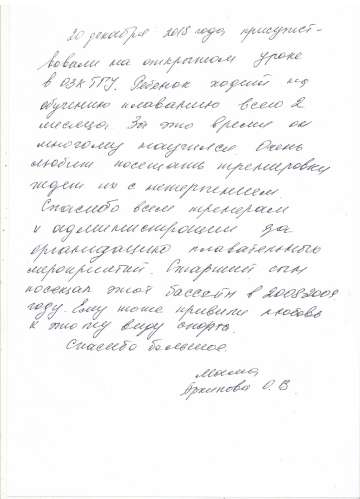 20 декабря 2015 года, присутст-
вовали на открытом уроке
в ОЗК ТПУ. Ребенок ходит на
обучению плаванию всего 2
месяца. За это время он
многому научился. Очень
любит посещать тренировки
ждет их с нетерпением.
Спасибо всем тренерам
и администрации за
организацию плавательных
мероприятий. Старший сын
посещал этот бассейн в 2008-2009
году. Ему тоже привили любовь
к этому виду спорта.
Спасибо большое.
Мама
Архипова О. В